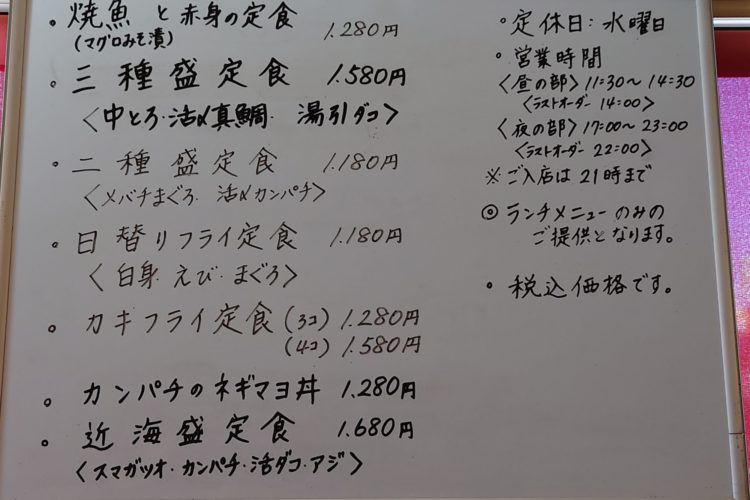 ・焼魚と赤身の定食 1.280円
(マグロみそ漬)
・三種盛定食 1.580円
〈中とろ・活〆真鯛・湯引ダコ〉
・二種盛定食 1.180円
〈メバチまぐろ・活〆カンパチ〉
・日替りフライ定食 1.180円
〈白身・えび・まぐろ〉
・カキフライ定食(3コ) 1.280円
(4コ) 1.580円
・カンパチのネギマヨ丼 1.280円
・近海盛定食 1.680円
〈スマガツオ・カンパチ・活ダコ・アジ〉
・定休日:水曜日
・営業時間
〈昼の部〉11:30〜14:30
〈ラストオーダー 14:00〉
〈夜の部〉17:00〜23:00
〈ラストオーダー 22:00〉
※ご入店は21時まで
◎ランチメニューのみの
ご提供となります。
・税込価格です。